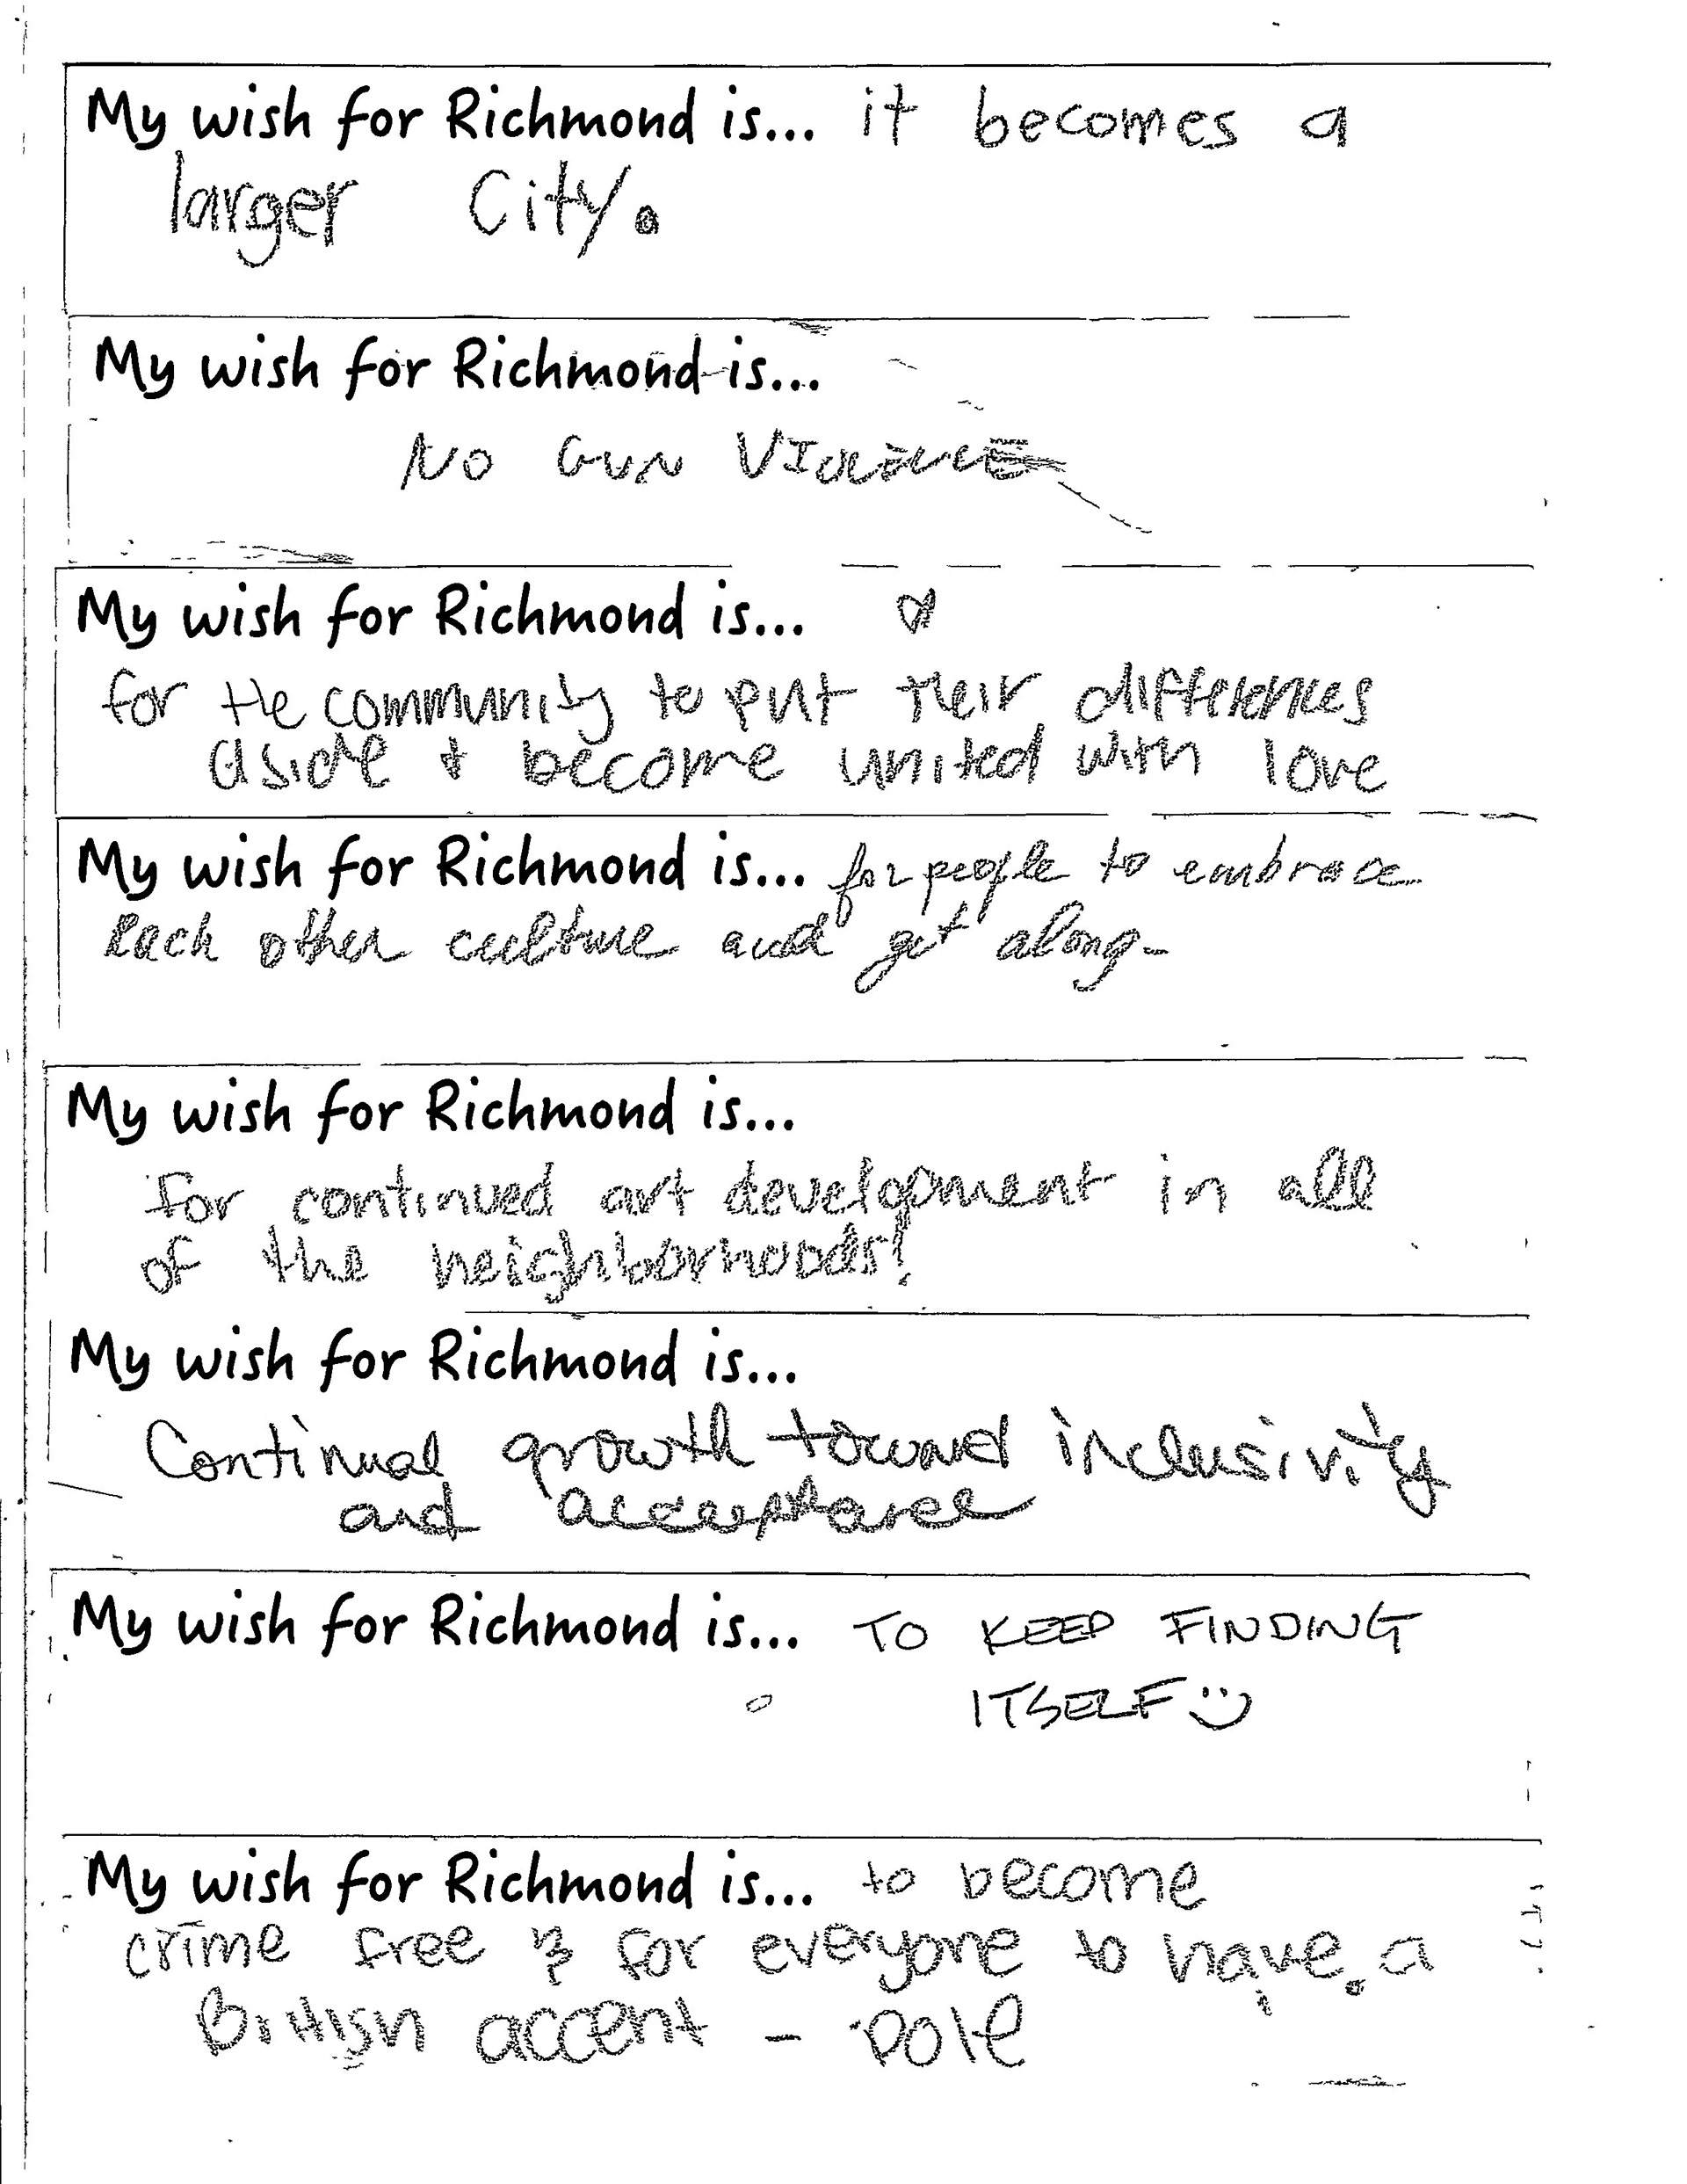 My wish for Richmond is... it becomes a
larger City.
My wish for Richmond is...
No Gun VIolence
My wish for Richmond is...
for the community to put their differences
aside + become united with love
My wish for Richmond is... for people to embrace
each other culture and get along-
My wish for Richmond is...
for continued art development in all
of the neighborhoods!
My wish for Richmond is...
Continual growth toward inclusivity
and acceptance
My wish for Richmond is... TO KEEP FINDING
ITSELF :)
My wish for Richmond is... to become
crime free & for everyone to have a
British accent - Dole